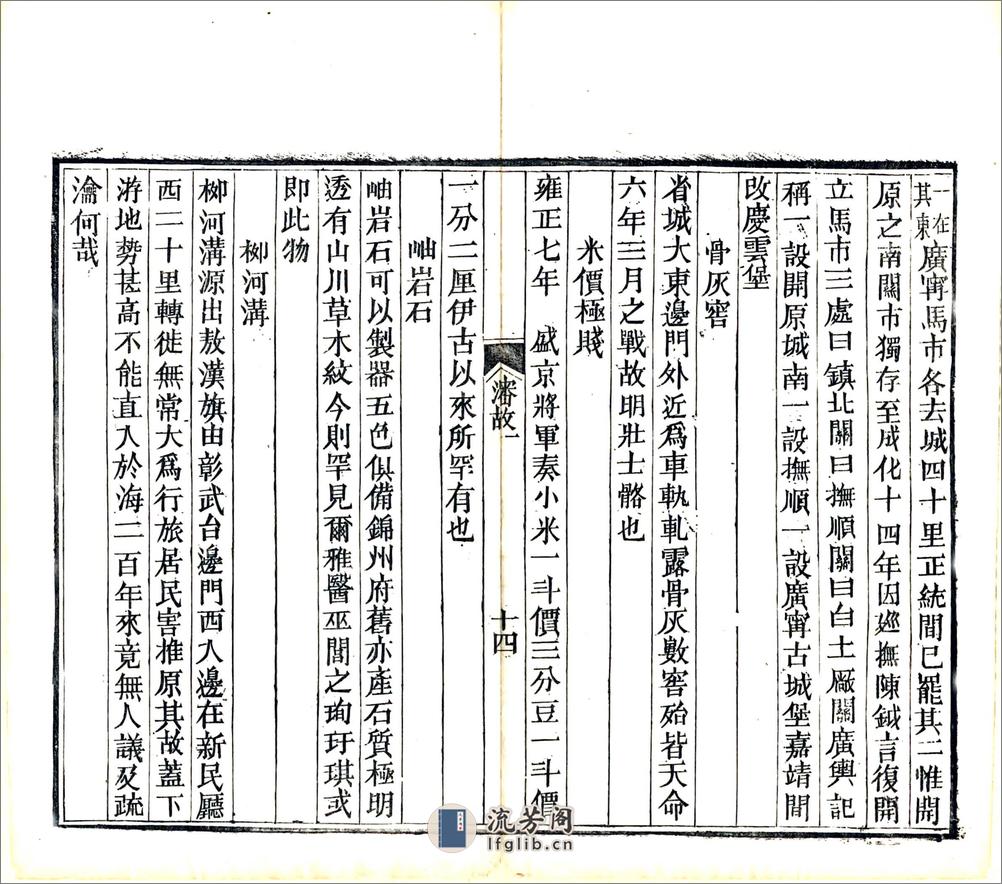 一在其東廣甯馬市各去城四十里正統間已罷其二惟開
原之南關市獨存至成化十四年因廵撫陳鉞言復開
立馬市三處曰鎮北關曰撫順關曰白土厰關廣輿記
稱一設開原城南一設撫順一設廣甯古城堡嘉靖間
改慶雲堡
骨灰窖
省城大東邊門外近爲車執軋露骨灰數窖殆皆天命
六年三月之戰故明壯士骼也
米價極賤
雍正七年 盛京將軍奏小米一斗價三分豆一斗價
瀋故一
十四
一分二厘伊古以來所罕有也
岫岩石
岫岩石可以製器五色俱備錦州府舊亦產石質極明
透有山川草木紋今則罕見爾雅醫巫閭之珣玗琪或
即此物
柳河溝
柳河溝源出敖漢旗由彰武台邊門西入邊在新民廳
西二十里轉徙無常大爲行旅居民害推原其故蓋下
游地勢甚高不能直入於海二百年來竟無人議及疏
瀹何哉
流芳阁
lfglib.cn